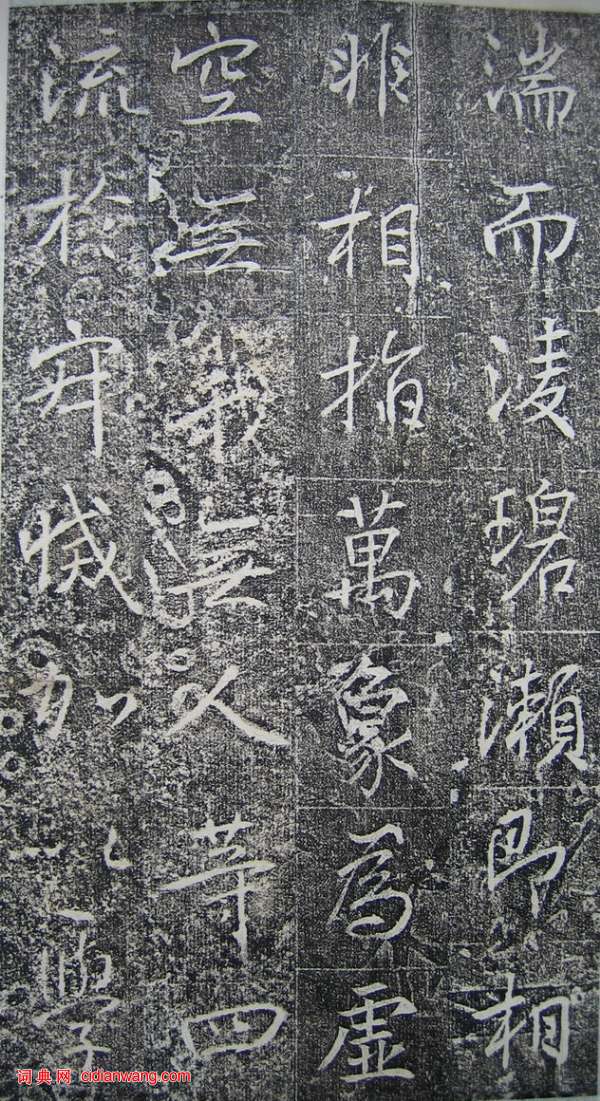 湍而淩碧瀨即相
非相指萬象爲虛
空無我無人等四
流於寂滅加以學
词典网 cidianwang.com